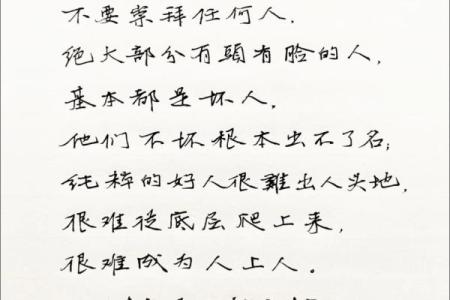 不要崇拜任何人.
绝大部分有頭有脸的人,
基本都是坏人.
他们不坏根本出不了名;
纯粹的好人很難出人头地,
很难從底层爬上来,
很难成为人上人。